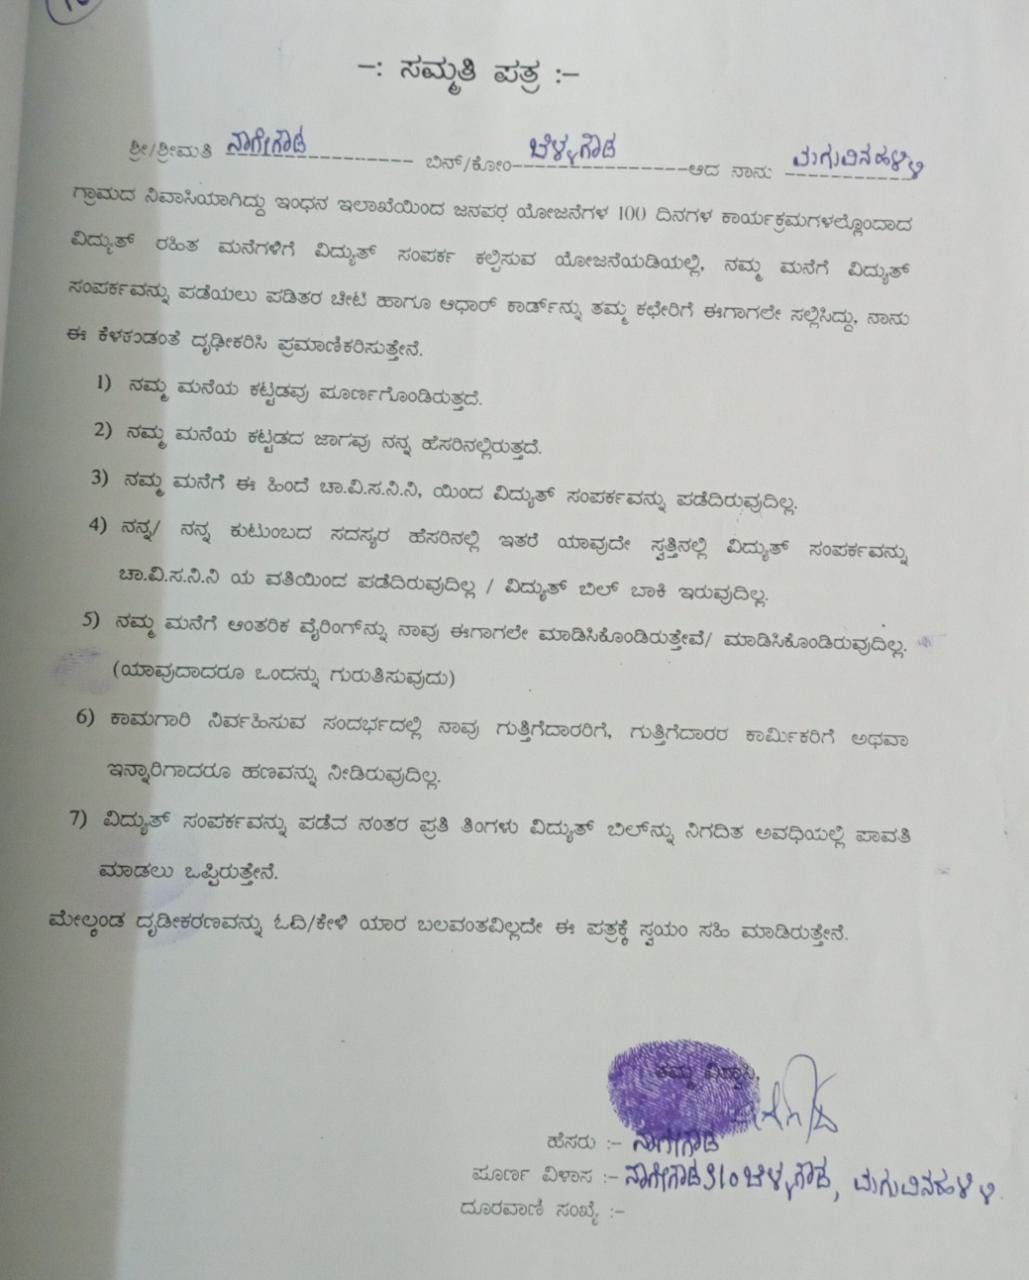 -: ಸಮ್ಮತಿ ಪತ್ರ :-
ಶ್ರೀ/ಶ್ರೀಮತಿ ನಾಗೇಗೌಡ ಬಿನ್/ಕೋಂ ಬೆಳ್ಳಗೌಡ ಆದ ನಾನು ಮಗುವಿನಹಳ್ಳಿ
ಗ್ರಾಮದ ನಿವಾಸಿಯಾಗಿದ್ದು ಇಂಧನ ಇಲಾಖೆಯಿಂದ ಜನಪರ ಯೋಜನೆಗಳ 100 ದಿನಗಳ ಕಾರ್ಯಕ್ರಮಗಳಲ್ಲೊಂದಾದ
ವಿದ್ಯುತ್ ರಹಿತ ಮನೆಗಳಿಗೆ ವಿದ್ಯುತ್ ಸಂಪರ್ಕ ಕಲ್ಪಿಸುವ ಯೋಜನೆಯಡಿಯಲ್ಲಿ, ನಮ್ಮ ಮನೆಗೆ ವಿದ್ಯುತ್
ಸಂಪರ್ಕವನ್ನು ಪಡೆಯಲು ಪಡಿತರ ಚೀಟಿ ಹಾಗೂ ಆಧಾರ್ ಕಾರ್ಡ್‌ನ್ನು ತಮ್ಮ ಕಛೇರಿಗೆ ಈಗಾಗಲೇ ಸಲ್ಲಿಸಿದ್ದು, ನಾನು
ಈ ಕೆಳಕಂಡಂತೆ ದೃಢೀಕರಿಸಿ ಪ್ರಮಾಣಿಕರಿಸುತ್ತೇನೆ.
1) ನಮ್ಮ ಮನೆಯ ಕಟ್ಟಡವು ಪೂರ್ಣಗೊಂಡಿರುತ್ತದೆ.
2) ನಮ್ಮ ಮನೆಯ ಕಟ್ಟಡದ ಜಾಗವು ನನ್ನ ಹೆಸರಿನಲ್ಲಿರುತ್ತದೆ.
3) ನಮ್ಮ ಮನೆಗೆ ಈ ಹಿಂದೆ ಚಾ.ವಿ.ಸ.ನಿ.ನಿ, ಯಿಂದ ವಿದ್ಯುತ್ ಸಂಪರ್ಕವನ್ನು ಪಡೆದಿರುವುದಿಲ್ಲ.
4) ನನ್ನ/ ನನ್ನ ಕುಟುಂಬದ ಸದಸ್ಯರ ಹೆಸರಿನಲ್ಲಿ ಇತರೆ ಯಾವುದೇ ಸ್ವತ್ತಿನಲ್ಲಿ ವಿದ್ಯುತ್ ಸಂಪರ್ಕವನ್ನು
ಚಾ.ವಿ.ಸ.ನಿ.ನಿ ಯ ವತಿಯಿಂದ ಪಡೆದಿರುವುದಿಲ್ಲ / ವಿದ್ಯುತ್ ಬಿಲ್ ಬಾಕಿ ಇರುವುದಿಲ್ಲ.
5) ನಮ್ಮ ಮನೆಗೆ ಆಂತರಿಕ ವೈರಿಂಗ್‌ನ್ನು ನಾವು ಈಗಾಗಲೇ ಮಾಡಿಸಿಕೊಂಡಿರುತ್ತೇವೆ/ ಮಾಡಿಸಿಕೊಂಡಿರುವುದಿಲ್ಲ.
(ಯಾವುದಾದರೂ ಒಂದನ್ನು ಗುರುತಿಸುವುದು)
6) ಕಾಮಗಾರಿ ನಿರ್ವಹಿಸುವ ಸಂದರ್ಭದಲ್ಲಿ ನಾವು ಗುತ್ತಿಗೆದಾರರಿಗೆ, ಗುತ್ತಿಗೆದಾರರ ಕಾರ್ಮಿಕರಿಗೆ ಅಥವಾ
ಇನ್ನಾರಿಗಾದರೂ ಹಣವನ್ನು ನೀಡಿರುವುದಿಲ್ಲ.
7) ವಿದ್ಯುತ್ ಸಂಪರ್ಕವನ್ನು ಪಡೆದ ನಂತರ ಪ್ರತಿ ತಿಂಗಳು ವಿದ್ಯುತ್ ಬಿಲ್‌ನ್ನು ನಿಗದಿತ ಅವಧಿಯಲ್ಲಿ ಪಾವತಿ
ಮಾಡಲು ಒಪ್ಪಿರುತ್ತೇನೆ.
ಮೇಲ್ಕಂಡ ದೃಡೀಕರಣವನ್ನು ಓದಿ/ಕೇಳಿ ಯಾರ ಬಲವಂತವಿಲ್ಲದೇ ಈ ಪತ್ರಕ್ಕೆ ಸ್ವಯಂ ಸಹಿ ಮಾಡಿರುತ್ತೇನೆ.
ತಮ್ಮ ವಿಶ್ವಾಸಿ,
ಹೆಸರು :- ನಾಗೇಗೌಡ
ಪೂರ್ಣ ವಿಳಾಸ :- ನಾಗೇಗೌಡ S/o ಬೆಳ್ಳಗೌಡ, ಮಗುವಿನಹಳ್ಳಿ
ದೂರವಾಣಿ ಸಂಖ್ಯೆ :-